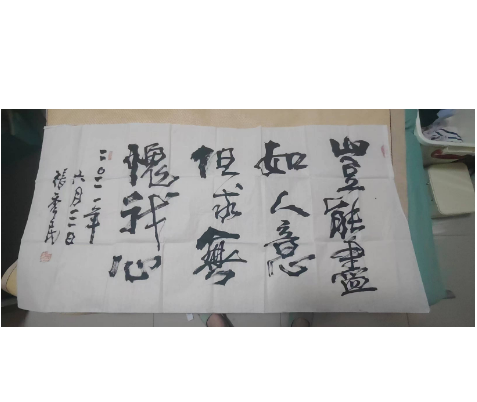 豈能盡
如人意
但求無
愧我心
二〇二一年
六月二二日